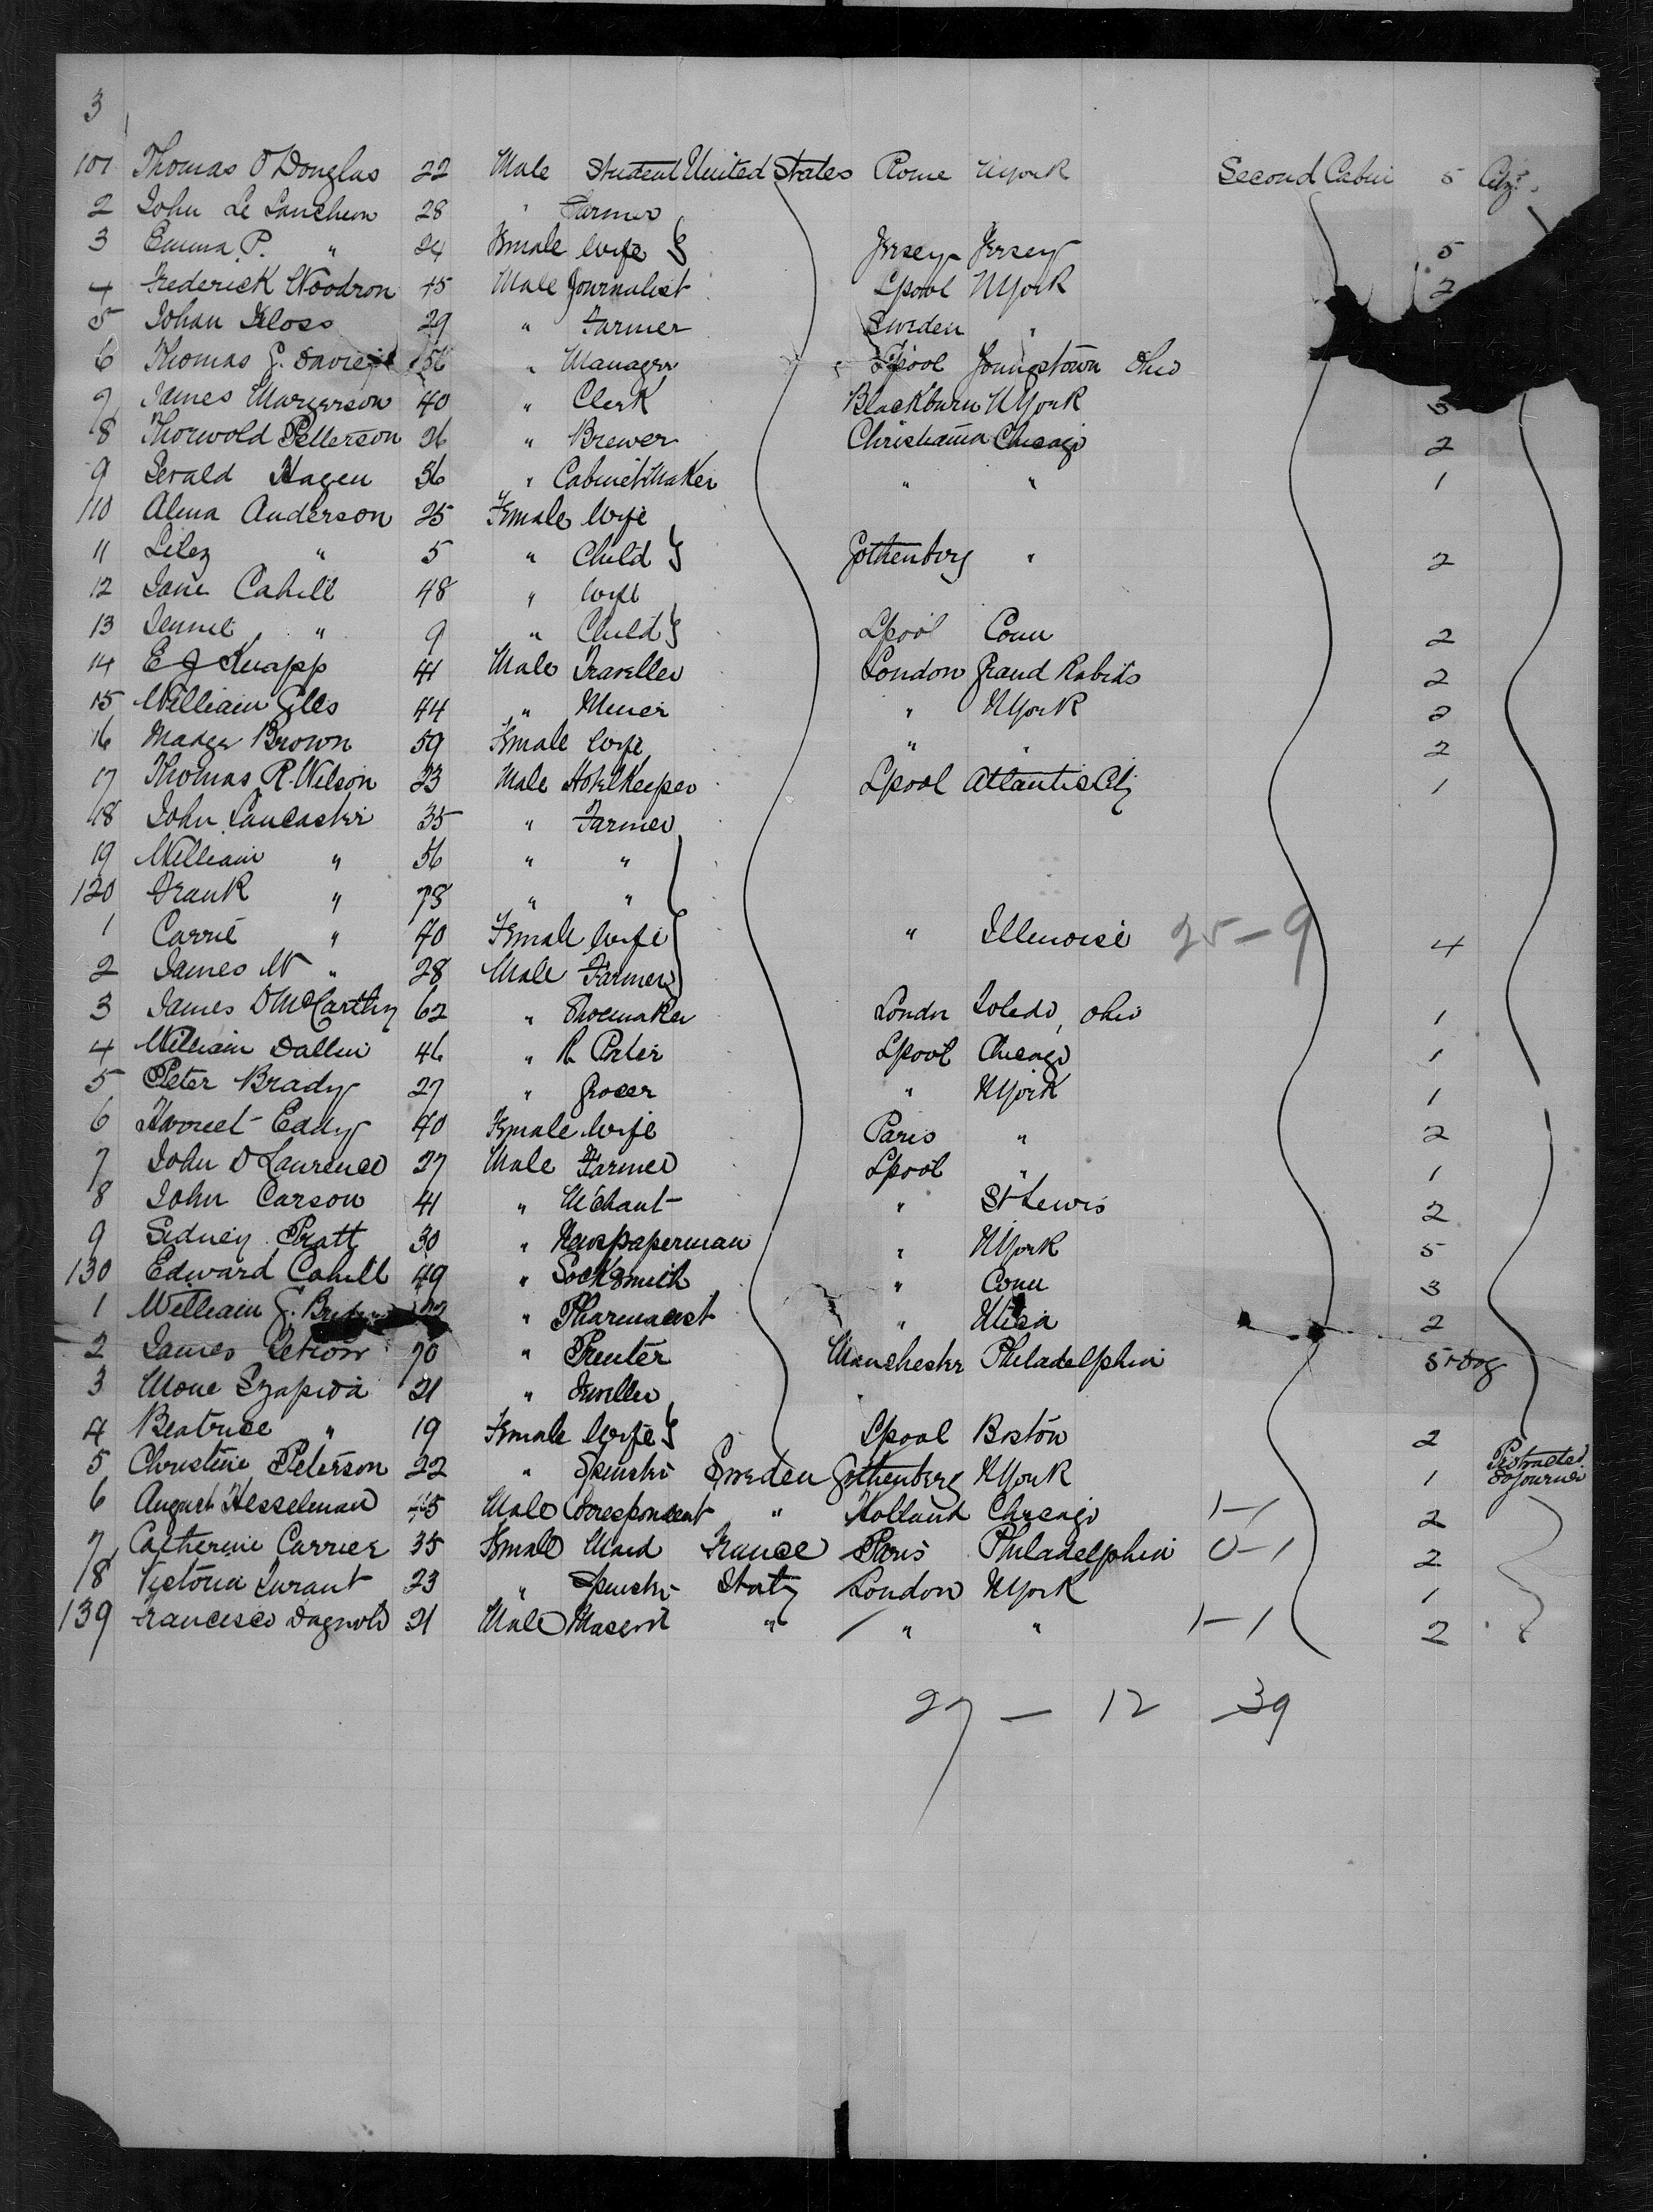 3
101 Thomas O Douglas 22 Male Student United States Rome NYork Second Cabin 5
2 John Le 28 " Farmer
3 Emma P. " 24 Female Wife Jersey Jersey 5
4 Frederick Woodron 45 Male Journalist Lpool NYork 2
5 Johan Kloss 29 " Farmer Sweden "
6 Thomas G. Davies 56 " Manager Lpool Youngstown Ohio
7 James Margerson 40 " Clerk Blackburn NYork
8 Thorwold Petterson 26 " Brewer Christiania Chicago 2
9 Hagen 36 " Cabinet Maker " " 1
110 Alma Anderson 25 Female Wife
11 " 5 " Child Gothenberg " 2
12 Jane Cahill 48 " Wife
13 Jennie " 9 " Child Lpool Conn 2
14 E J Knapp 41 Male Traveller London Grand Rabids 2
15 William Gilles 44 " Miner " NYork 2
16 Brown 59 Female Wife " " 2
17 Thomas R. Wilson 23 Male HotelKeeper Lpool Atlantic City 1
18 John Lancaster 35 " Farmer
19 William " 56 " "
120 Frank " 78 " "
1 Carrie " 40 Female Wife " Illenoise 25-9 4
2 James W " 28 Male Farmer
3 James D McCarthy 62 " Shoemaker London Toledo, Ohio 1
4 William Dallin 46 " R Porter Lpool Chicago 1
5 Peter Brady 27 " Grocer " NYork 1
6 Harreet Eddy 40 Female Wife Paris " 2
7 John D Laurence 27 Male Farmer Lpool " 1
8 John Carson 41 " Mchant " St Lewis 2
9 Sidney Pratt 30 " Newspaperman " NYork 5
130 Edward Cahill 49 " Locksmith " Conn 3
1 William G. " Pharmacist " Utica 2
2 James 70 " Printer Manchester Philadelphia 5+dog
3 21 " Jeweller
4 Beatrice " 19 Female Wife Lpool Boston 2
5 Christine Peterson 22 " Spinster Sweden Gothenberg NYork 1 Protracted Sojourner
6 August Hesselman 45 Male Correspondent " Holland Chicago 1-1 2
7 Catherine Carrier 35 Female Maid France Paris Philadelphia 0-1 2
18 Victoria 23 " Spinster Staty London NYork 1
139 Francesco Dagnoli 21 Male " " " 1-1 2
27 - 12 -39